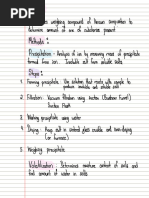 involves weighing compound of known composition to
determine amount of ion of substance present
Methods:
Precipitation - Analysis of ion by measuring mass of precipitate
formed from ion. Insoluble salt from soluble salts.
Steps:
1. Forming precipitate. Use solution that reacts with sample to
produce insoluble and soluble salt
2. Filtration: Vacuum filtration using suction (Buchner funnel)
Suction flask
3. Washing:
4. Drying: Keep salt in control place crucible and non-drying
(or furnace)
5. Weighing precipitate
Volatilisation: Determines moisture content of soils and
find amount of water in salts